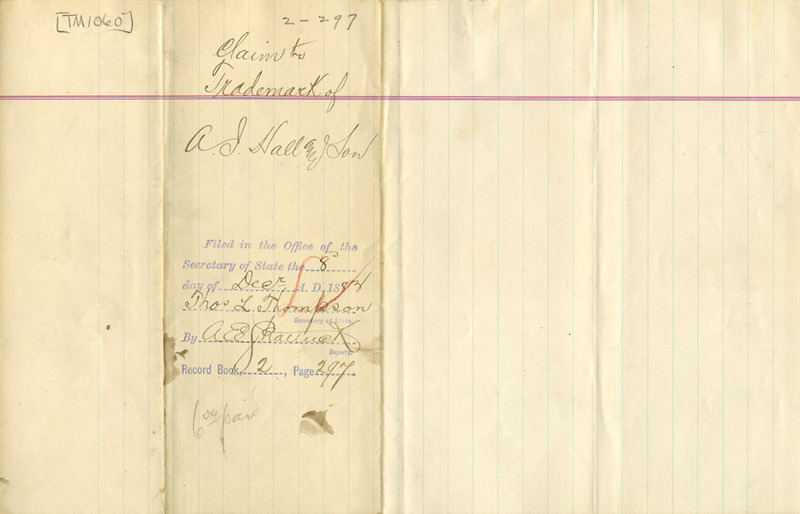 [TM1060]
2-297
Claim to
Trademark of
A. J. Hall & Son
Filed in the Office of the
Secretary of State the 8
day of Decr, A. D. 1884
Thos L Thompson
Secretary of State
By A E
Deputy.
Record Book, 2, Page 297.
6 00 paid